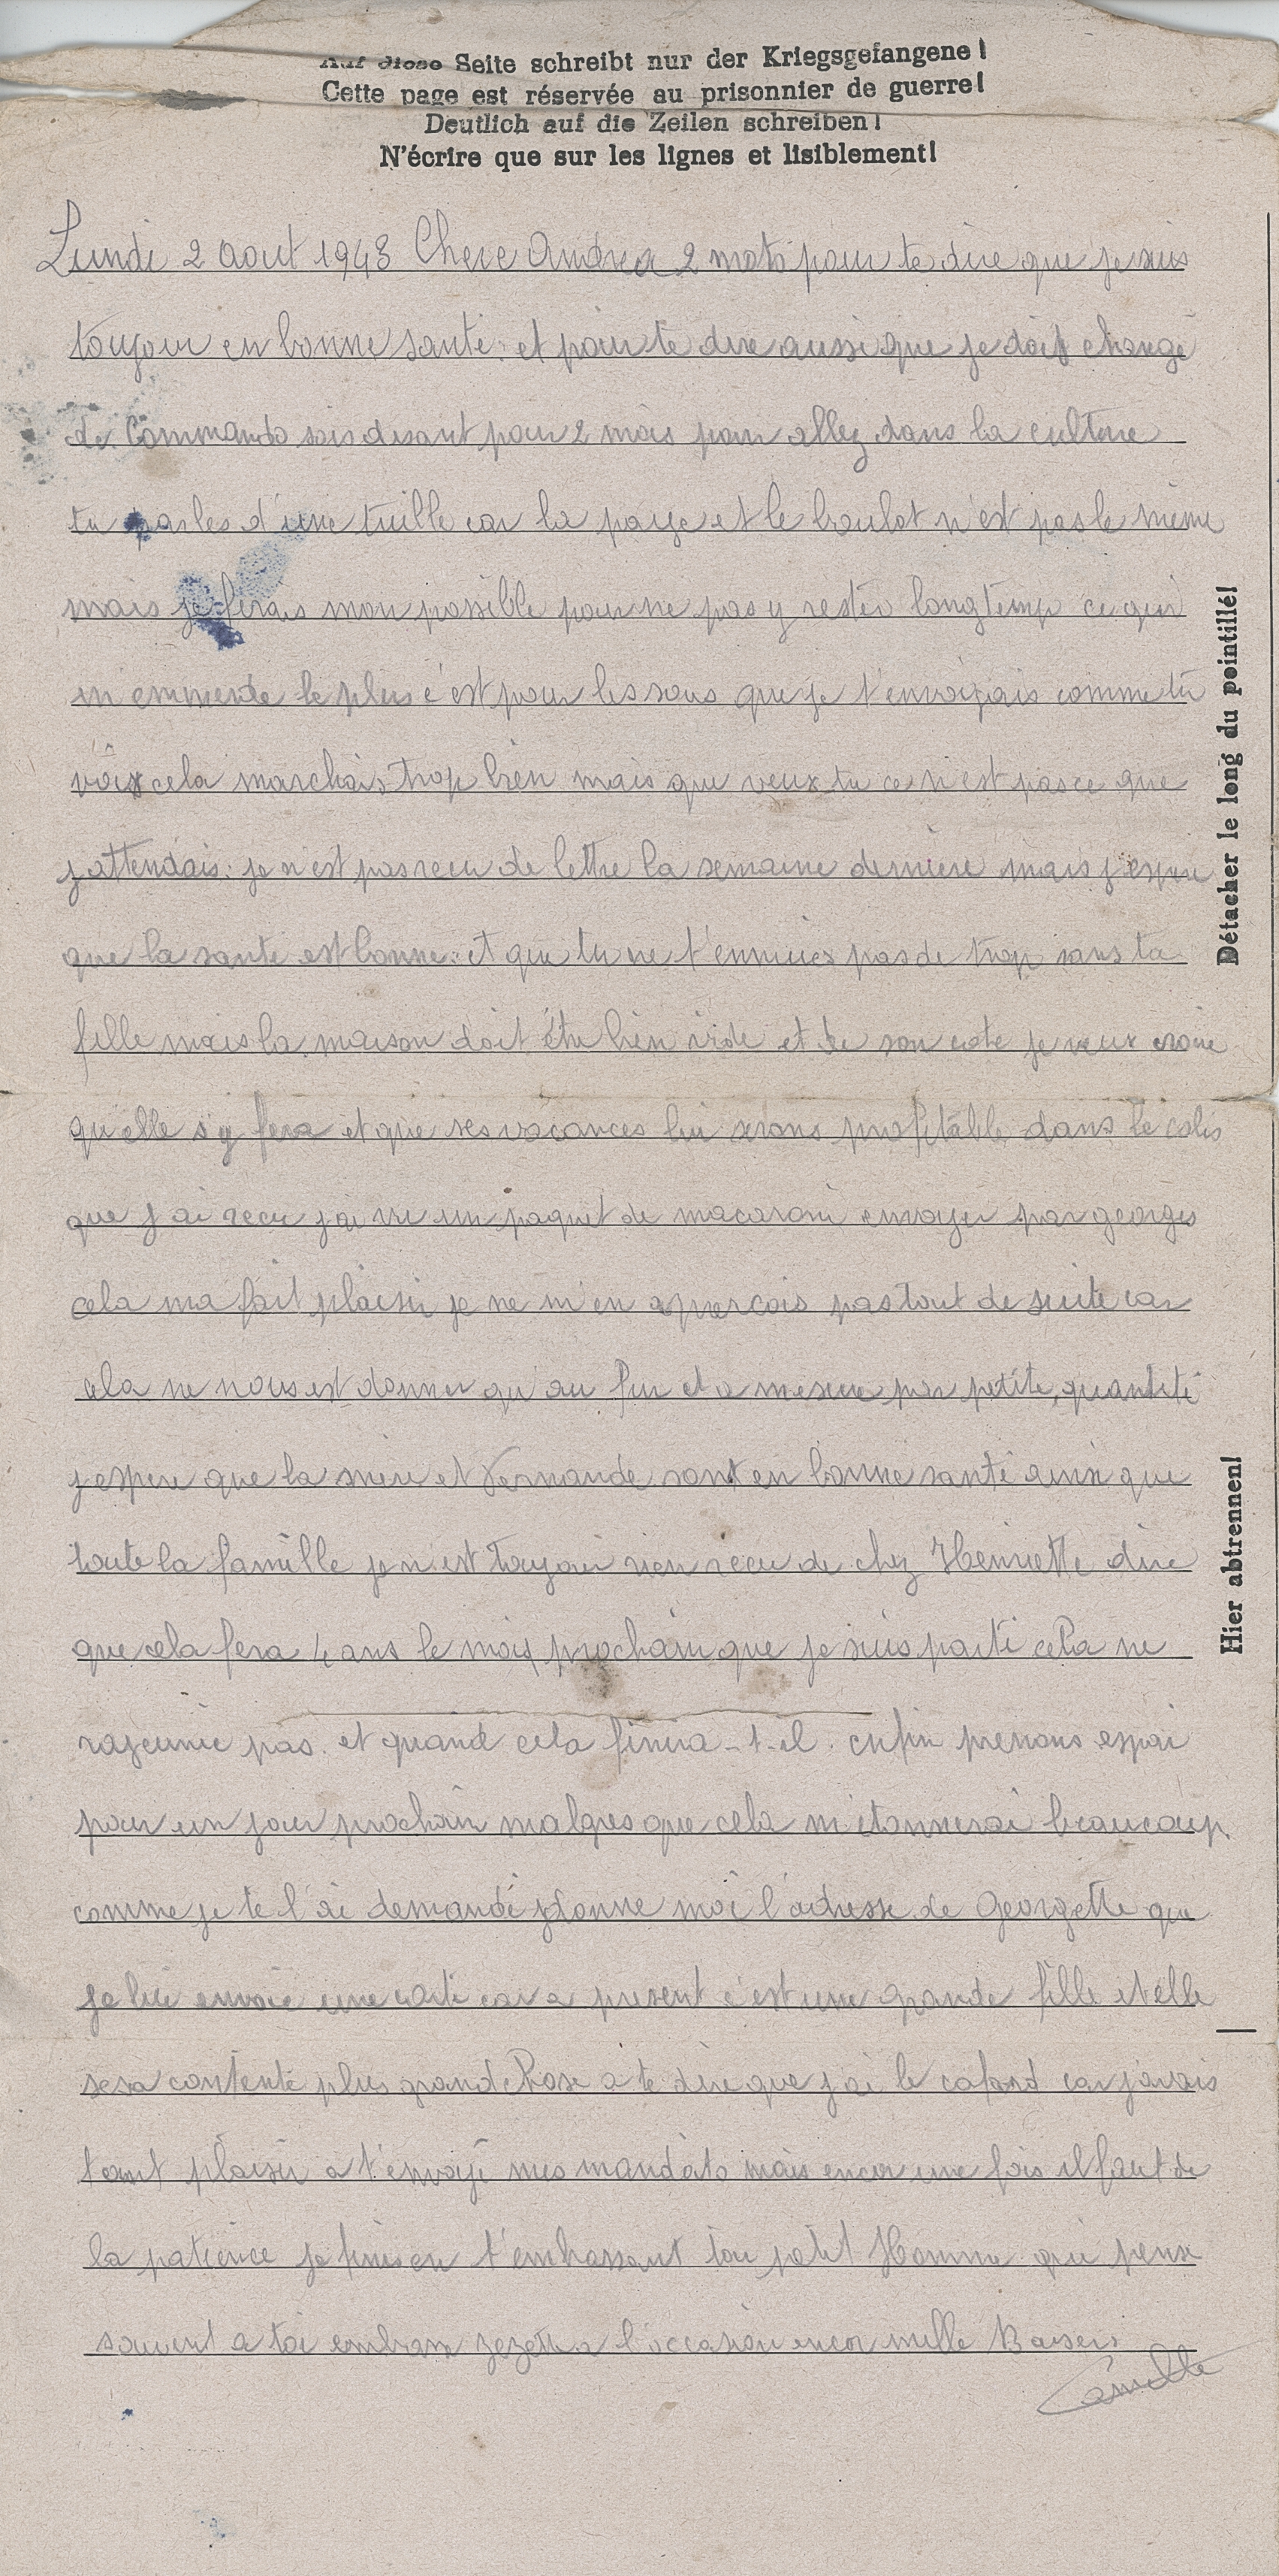 Auf diese Seite schreibt nur der Kriegsgefangene!
Cette page est réservée au prisonnier de guerre!
Deutlich auf die Zeilen schreiben!
N'écrire que sur les lignes et lisiblement!
Lundi 2 aout 1943 Chere Andrea 2 mots pour te dire que je suis
toujour en bonne santé. et pour te dire aussi que je doit changé
de Commando sois disant pour 2 mois pour allez dans la culture
tu parles d'une tuille car la paye et le boulot n'est pas le même
mais je ferais mon possible pour ne pas y rester longtemp ce qui
m emmerde le plus c'est pour les sous que je t'envoyais comme tu
vois cela marchais trop bien mais que veux tu ce n'est pas ce que
j'attendais. je n'est pas recu de lettre la semaine derniere mais j'espere
que la sante est bonne. et que tu ne t'ennuies pas de trop sans ta
fille mais la maison doit être bien vide et de son cote je veux croire
qu'elle s'y fera et que ses vacances lui serons profitable dans le colis
que j ai recu j'ai vu un paquet de macaroni envoyer par georges
cela ma fait plaisir je ne m'en apercois pas tout de suite car
cela ne nous est donner qu'au fur et a mesure par petite quantité
j espere que la mere et Fernande sont en bonne santé ainsi que
toute la famille je n'est toujour rien recu de chez Henriette dire
que cela fera 4 ans le mois prochain que je suis parti cela ne
rajeunie pas. et quand cela finira-t-il. enfin prenons espoi
pour un jour prochain malgres que cela m'étonnerai beaucoup.
comme je te l'ai demandé donne moi l'adresse de Georgette que
je lui envoie une carte car a present c'est une grande fille et elle
sera contente plus grand chose a te dire que j ai le cafard car j'avais
tant plaisir a t'envoyé mes mandats mais encor une fois il faut de
la patience je finis en t'embrassant ton petit Homme qui pense
souvent a toi embrasse zezette a l'occasion encor mille Baisers
Détacher le long du pointillé!
Hier abtrennen!